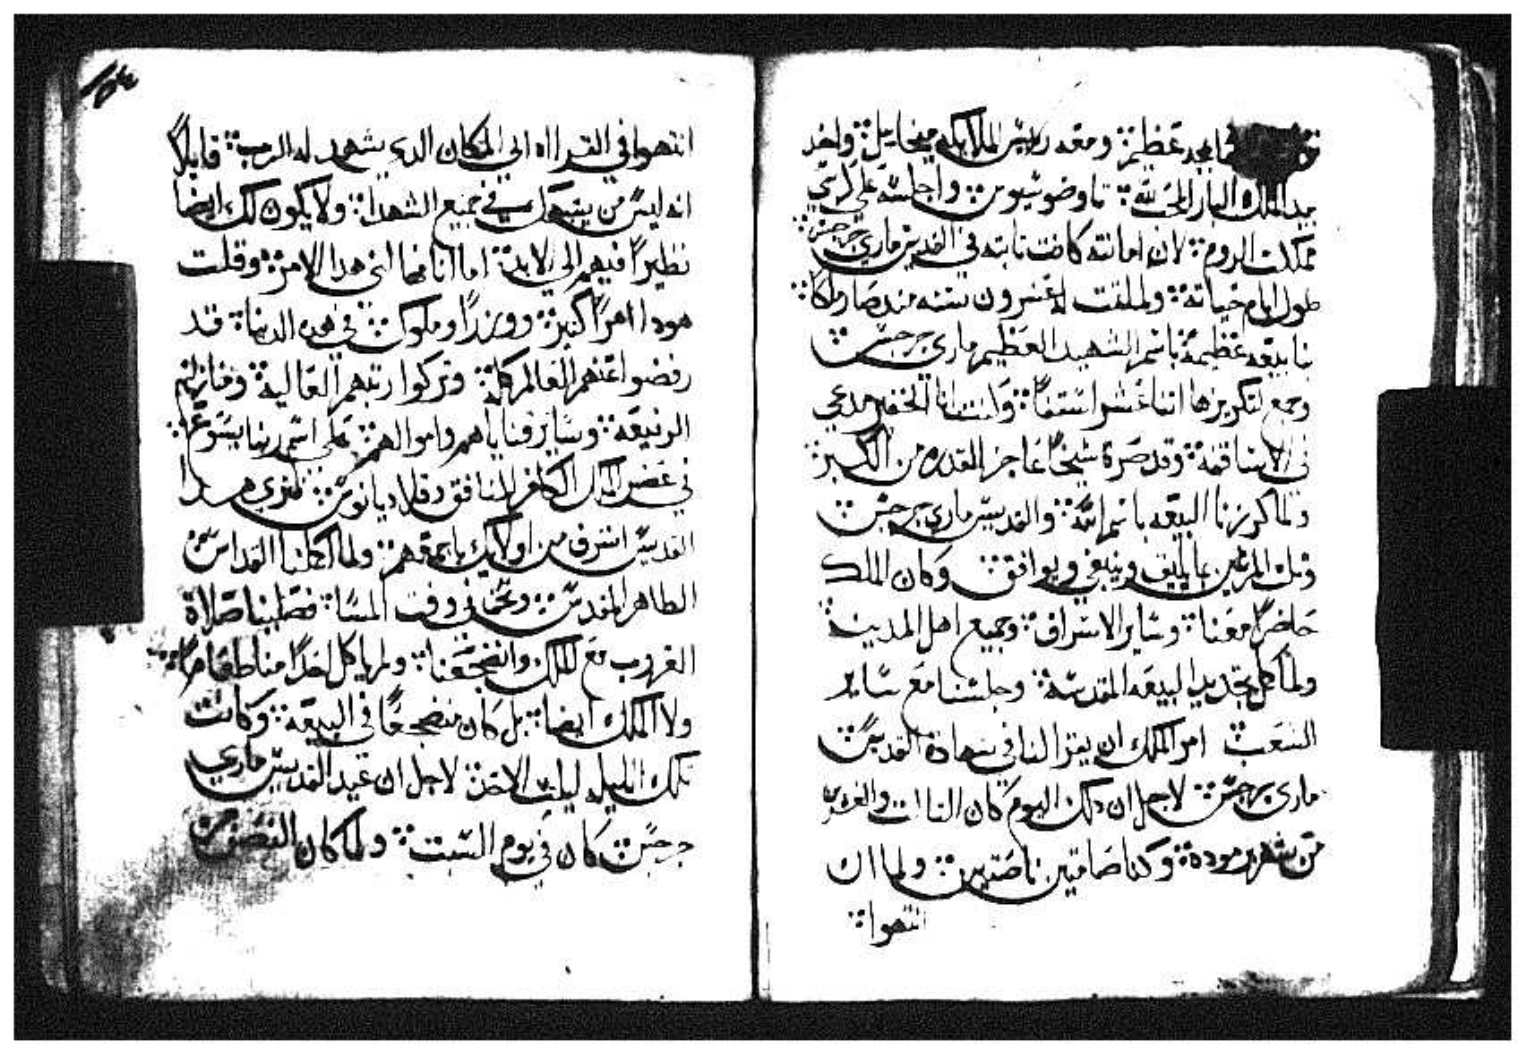 بمجد عظيم ومعه رييس الملايكه ميخاييل واخد
بيد الملك البار المحب لله تاوضوسيوس واجلسه علي كراسي
مملكت الروم لان امانته كانت تابته في القديس ماري جرجس
طول ايام حياته ولما تمت له عشرون سنه مند صار ملكا
بنا بيعه عظيمة باسم الشهيد العظيم ماري جرجس
وجمع لتكريزها اتنا عشر اسقفا وكنت انا الحقير مدعي
في الاساقفه وقد صرة شيخا عاجز القدره من الكبر
ولما كرزنا البيعه باسم الله والقديس ماري جرجس
ودلك المرتين بما يليق وينبغي ويوافق وكان الملك
حاضرا معنا وساير الاشراف وجميع اهل المدينه
ولما كمل تجديد البيعه المقدسه وجلسنا مع ساير
الشعب امر الملك ان يقرا لنا في شهادة القديس
ماري جرجس لاجل ان دلك اليوم كان التالت والعشرين
من شهر برموده وكنا صامتين ناصتين ولما ان
انتهوا
انتهوا في القراه الي المكان الدي يشهد له الرب قايلا
انه ليس من يشبهك في جميع الشهدا ولا يكون لك ايضا
نظيرا فيهم الي الابد اما انا فهالني هدا الامر وقلت
هودا امرا كتيره ووزرا وملوك في هده الدنيا قد
رفضوا عنهم العالم كله وتركوا رتبهم العاليه ومنازلهم
الرفيعه وساير قناياهم واموالهم علي اسم ربنا يسوع
في عصر الملك الكافر المنافق دقلاديانوس فنري هدا
القديس اشرف من اولايك باجمعهم ولما اكملنا القداس
الطاهر المقدس ونحن في وقت المسا فصلينا صلاة
الغروب مع الملك وانضجعنا ولم ياكل احدا منا طعاما
ولا الملك ايضا بل كان منضجعا في البيعه وكانت
تلك الليله ليلت الاحد لاجل ان عيد القديس ماري
جرجس كان في يوم السبت ولما كان النصف من